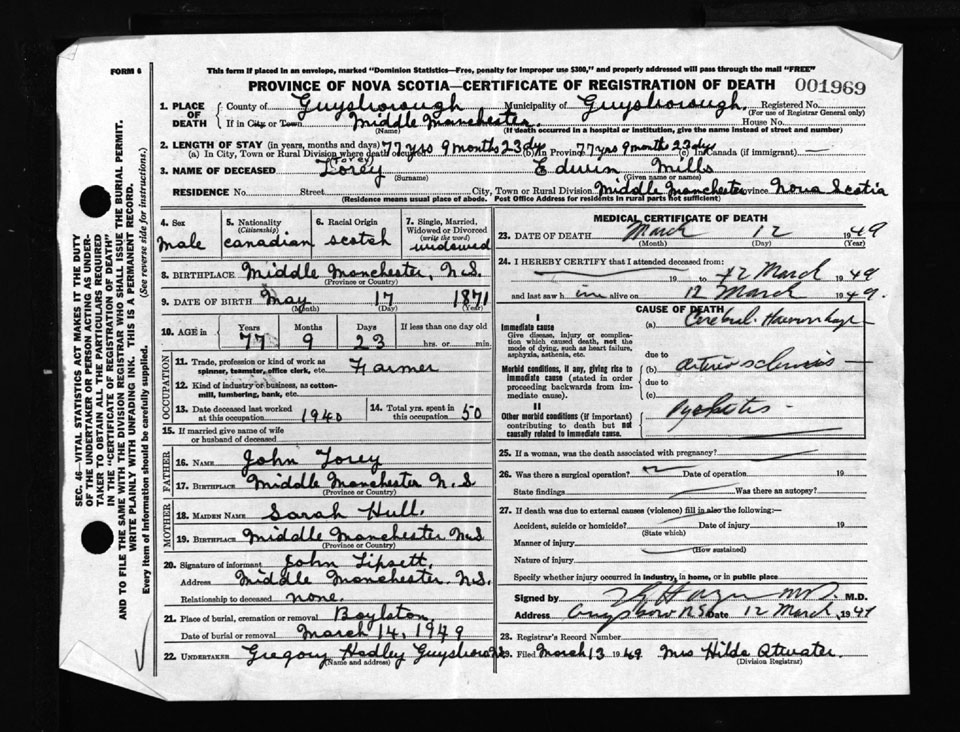 FORM 6
This form if placed in an envelope, marked "Dominion Statistics—Free, penalty for improper use $300," and properly addressed will pass through the mail "FREE"
PROVINCE OF NOVA SCOTIA—CERTIFICATE OF REGISTRATION OF DEATH 001969
1. PLACE OF DEATH County of Guysborough Municipality of Guysborough. Registered No.
(For use of Registrar General only)
If in City or Town Middle Manchester. House No.
(Name) (If death occurred in a hospital or institution, give the name instead of street and number)
2. LENGTH OF STAY (in years, months and days)
(a) In City, Town or Rural Division where death occurred 77 yrs 9 months 23 dys (b) In Province 77 yrs 9 months 23 dys (c) In Canada (if immigrant) —
(Torey)
3. NAME OF DECEASED Torey Edwin Mills
(Surname) (Given name or names)
RESIDENCE No. Street City, Town or Rural Division Middle Manchester Province Nova Scotia
(Residence means usual place of abode. Post Office Address for residents in rural parts not sufficient)
4. Sex Male
5. Nationality (Citizenship) Canadian
6. Racial Origin Scotch
7. Single, Married, Widowed or Divorced (write the word) widowed
8. BIRTHPLACE Middle Manchester, N.S.
(Province or Country)
9. DATE OF BIRTH May 17 1871
(Month) (Day) (Year)
10. AGE in Years Months Days If less than one day old
77 9 23 hrs. or min.
OCCUPATION
11. Trade, profession or kind of work as spinner, teamster, office clerk, etc. Farmer
12. Kind of industry or business, as cotton-mill, lumbering, bank, etc.
13. Date deceased last worked at this occupation 1940
14. Total yrs. spent in this occupation 50
15. If married give name of wife or husband of deceased
FATHER
16. NAME John Torey
17. BIRTHPLACE Middle Manchester N.S
(Province or Country)
MOTHER
18. MAIDEN NAME Sarah Hull.
19. BIRTHPLACE Middle Manchester N.S
(Province or Country)
20. Signature of informant John Lipsett
Address Middle Manchester N.S.
Relationship to deceased none.
21. Place of burial, cremation or removal Boylston
Date of burial or removal March 14, 1949
22. UNDERTAKER Gregory Hadley Guysboro N.S.
(Name and address)
MEDICAL CERTIFICATE OF DEATH
23. DATE OF DEATH March 12 1949
(Month) (Day) (Year)
24. I HEREBY CERTIFY that I attended deceased from:
19 to 12 March 1949
and last saw him alive on 12 March 1949.
CAUSE OF DEATH
I
Immediate cause
Give disease, injury or complication which caused death, not the mode of dying, such as heart failure, asphyxia, asthenia, etc.
(a) Cerebral Haemorrhage
due to
Morbid conditions, if any, giving rise to immediate cause (stated in order proceeding backwards from immediate cause).
(b) arterio sclerosis
due to
(c)
II
Other morbid conditions (if important) contributing to death but not causally related to immediate cause.
25. If a woman, was the death associated with pregnancy?
26. Was there a surgical operation? Date of operation 19
State findings Was there an autopsy?
27. If death was due to external causes (violence) fill in also the following:—
Accident, suicide or homicide? Date of injury 19
(State which)
Manner of injury
(How sustained)
Nature of injury
Specify whether injury occurred in industry, in home, or in public place
Signed by M.D. M.D.
Address Guysboro N.S. Date 12 March, 1949
28. Registrar's Record Number
29. Filed March 13 1949 Mrs Hilda Atwater.
(Division Registrar)
SEC. 46—VITAL STATISTICS ACT MAKES IT THE DUTY
OF THE UNDERTAKER OR PERSON ACTING AS UNDER-
TAKER TO OBTAIN ALL THE PARTICULARS REQUIRED
IN THE "CERTIFICATE OF REGISTRATION OF DEATH"
AND TO FILE THE SAME WITH THE DIVISION REGISTRAR WHO SHALL ISSUE THE BURIAL PERMIT.
WRITE PLAINLY WITH UNFADING INK. THIS IS A PERMANENT RECORD.
Every Item of Information should be carefully supplied. (See reverse side for instructions.)